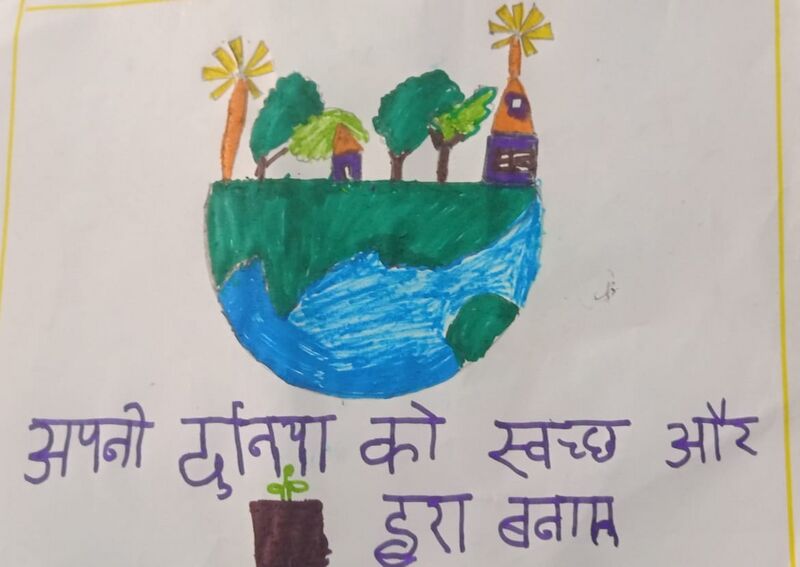 अपनी दुनिया को स्वच्छ और
हरा बनाए